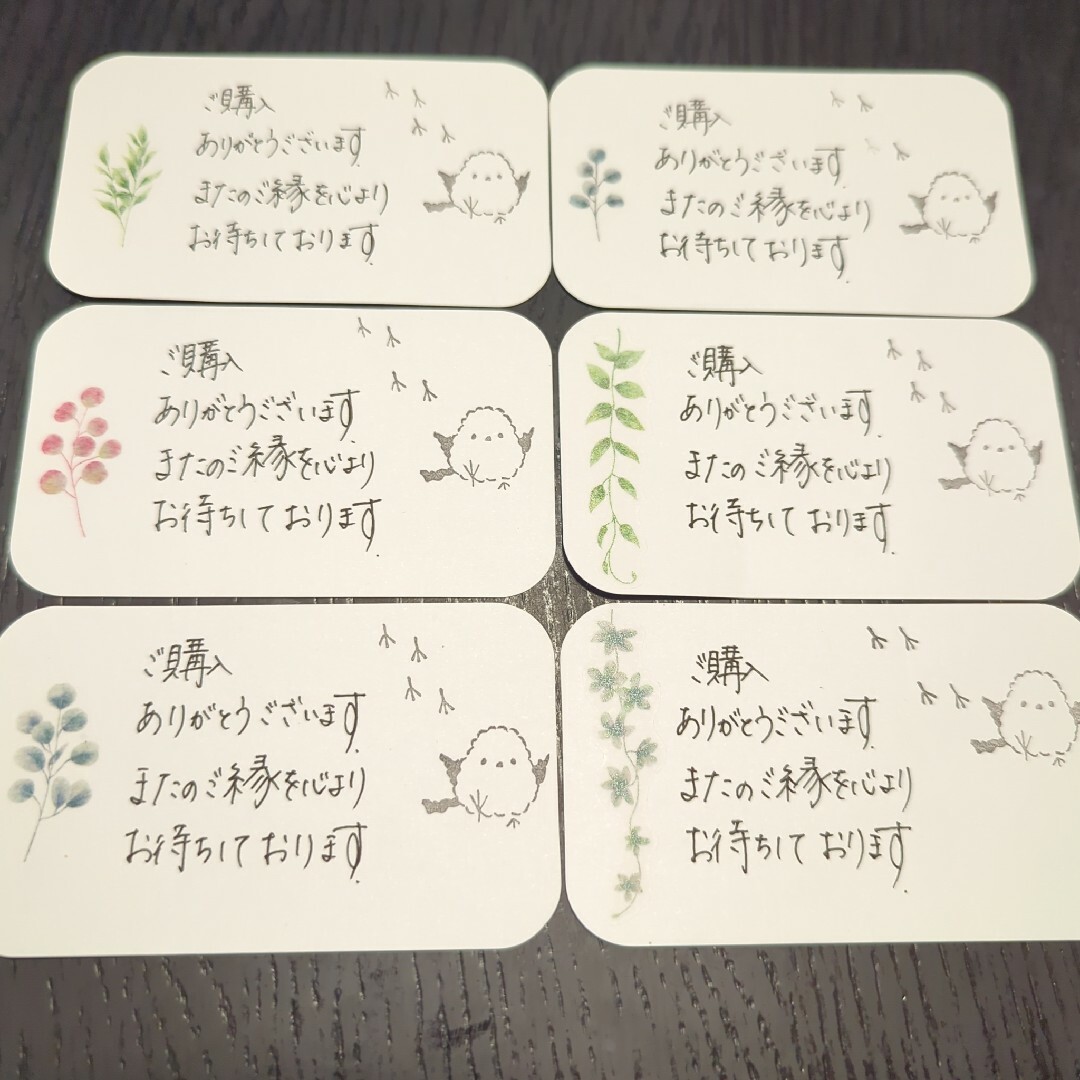 ご購入
ありがとうございます
またのご縁を心より
お待ちしております
ご購入
ありがとうございます
またのご縁を心より
お待ちしております
ご購入
ありがとうございます
またのご縁を心より
お待ちしております
ご購入
ありがとうございます
またのご縁を心より
お待ちしております
ご購入
ありがとうございます
またのご縁を心より
お待ちしております
ご購入
ありがとうございます
またのご縁を心より
お待ちしております